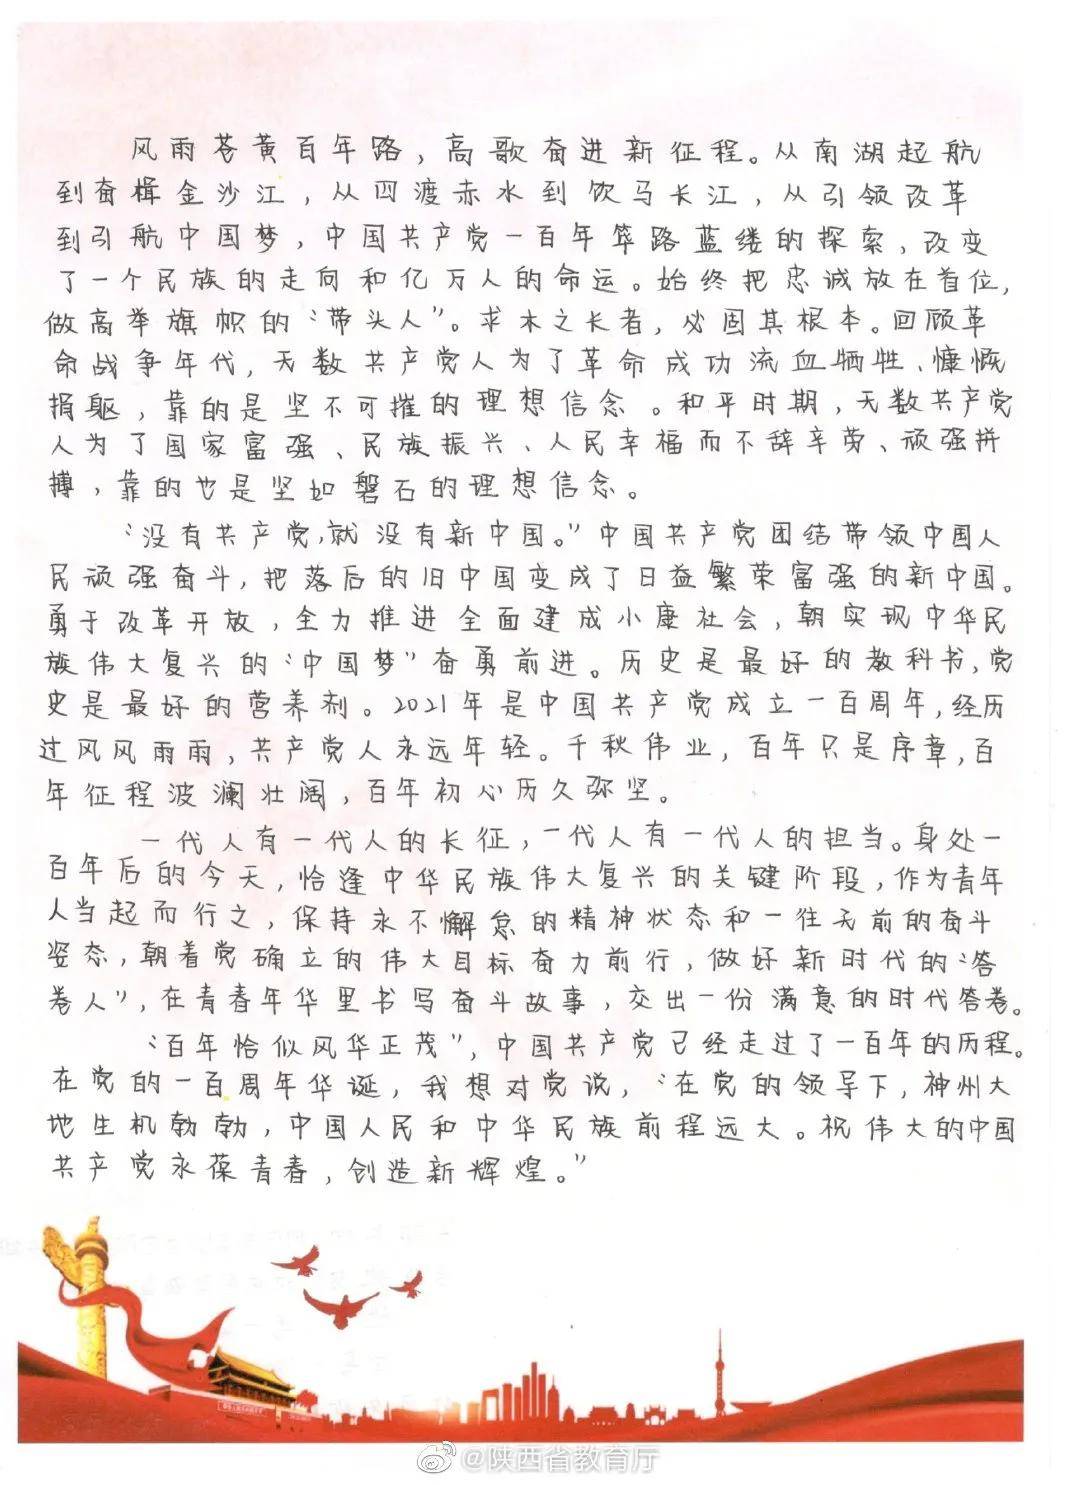 风雨苍黄百年路，高歌奋进新征程。从南湖起航
到奋楫金沙江，从四渡赤水到饮马长江，从引领改革
到引航中国梦，中国共产党一百年筚路蓝缕的探索，改变
了一个民族的走向和亿万人的命运。始终把忠诚放在首位，
做高举旗帜的“带头人”。求木之长者，必固其根本。回顾革
命战争年代，无数共产党人为了革命成功流血牺牲、慷慨
捐躯，靠的是坚不可摧的理想信念。和平时期，无数共产党
人为了国家富强、民族振兴、人民幸福而不辞辛劳、顽强拼
搏，靠的也是坚如磐石的理想信念。
“没有共产党，就没有新中国。”中国共产党团结带领中国人
民顽强奋斗，把落后的旧中国变成了日益繁荣富强的新中国。
勇于改革开放，全力推进全面建成小康社会，朝实现中华民
族伟大复兴的“中国梦”奋勇前进。历史是最好的教科书，党
史是最好的营养剂。2021年是中国共产党成立一百周年，经历
过风风雨雨，共产党人永远年轻。千秋伟业，百年只是序章，百
年征程波澜壮阔，百年初心历久弥坚。
一代人有一代人的长征，一代人有一代人的担当。身处一
百年后的今天，恰逢中华民族伟大复兴的关键阶段，作为青年
人当起而行之，保持永不懈怠的精神状态和一往无前的奋斗
姿态，朝着党确立的伟大目标奋力前行，做好新时代的“答
卷人”，在青春年华里书写奋斗故事，交出一份满意的时代答卷。
“百年恰似风华正茂”，中国共产党已经走过了一百年的历程。
在党的一百周年华诞，我想对党说，“在党的领导下，神州大
地生机勃勃，中国人民和中华民族前程远大。祝伟大的中国
共产党永葆青春，创造新辉煌。”
@陕西省教育厅